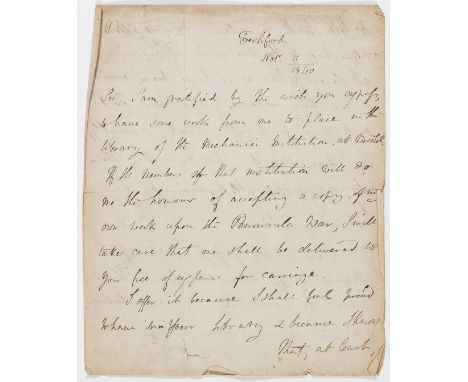 Freshford
Nov. 11
1840
Sir I am gratified by the wish you express
to have some work from me to place in the
library of the Mechanics Institution, at Bristol.
If the members of that institution will do
me the honour of accepting a copy of my
own work upon the Peninsula War, I will
take care that one shall be delivered to
you free of expense for carriage.
I offer it because I shall feel proud
to have it in your library & because I know
that, at least,